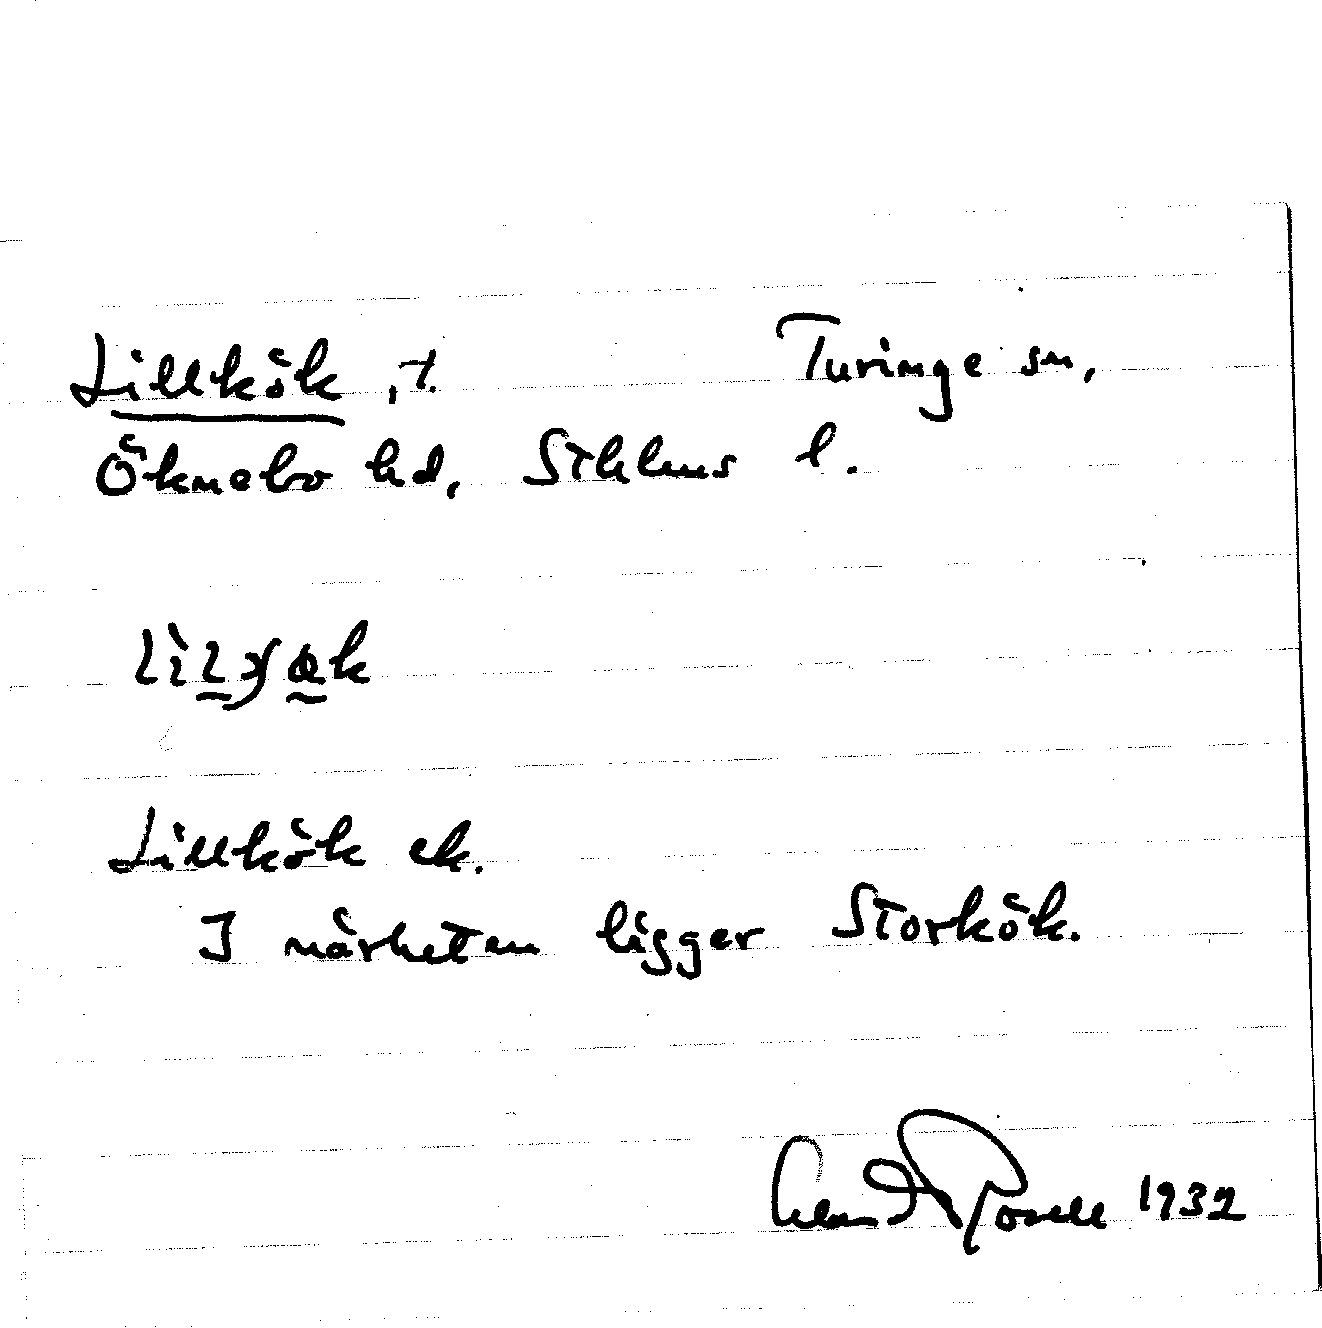 Lillkök, t. Turinge sn,
Öknebo hd, Sthlms l.
Lillkök ek.
I närheten ligger Storkök.
1932